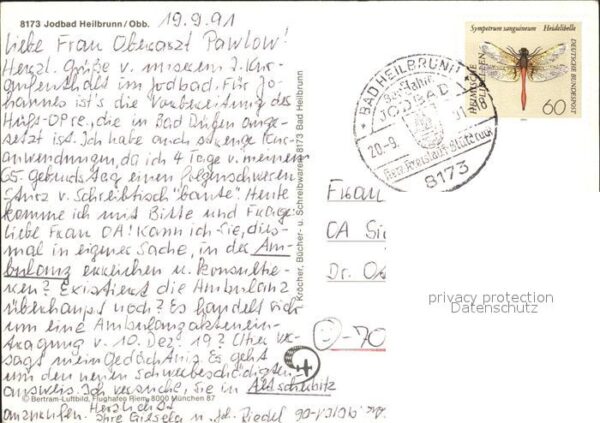 8173 Jodbad Heilbrunn/Obb. 19.9.91
Liebe Frau Oberarzt Pawlow!
Herzl. Grüße v. unserem 7. Kur-
aufenthalt im Jodbad. Für Jo-
hannes ist's die Vorbereitung des
Hüft-Opre., die in Bad Düben ange-
setzt ist. Ich habe auch strenge Kur-
anwendungen, da ich 4 Tage v. meinem
65. Geburtstag einen folgenschweren
Sturz v. Schreibtisch "baute". Heute
komme ich mit Bitte und Frage:
Liebe Frau OA! Kann ich Sie, dies-
mal in eigener Sache, in der Am-
bulanz erreichen u. konsultie-
ren? Existiert die Ambulanz
überhaupt noch? Es handelt sich
um eine Ambulanzakteneintragung
v. 10. Dez. 19? (Hier ver-
sagt mein Gedächtnis. Es geht
um den neuen Schwerbeschädigten-
ausweis. Ich versuche, Sie in Altscherbitz
© Bertram-Luftbild, Flughafen Riem, 8000 München 87
anzurufen. Herzlichst
Ihre Gisela u. Joh. Riedel
I. Kröcher, Bücher- u. Schreibwaren, 8173 Bad Heilbrunn
BAD HEILBRUNN
JODBAD
20.-9.
8173
Sympetrum sanguineum Heidelibelle
DEUTSCHE BUNDESPOST
HEIMISCHE LIBELLEN
60
Frau
CA
Dr.
O-70
privacy protection
Datenschutz